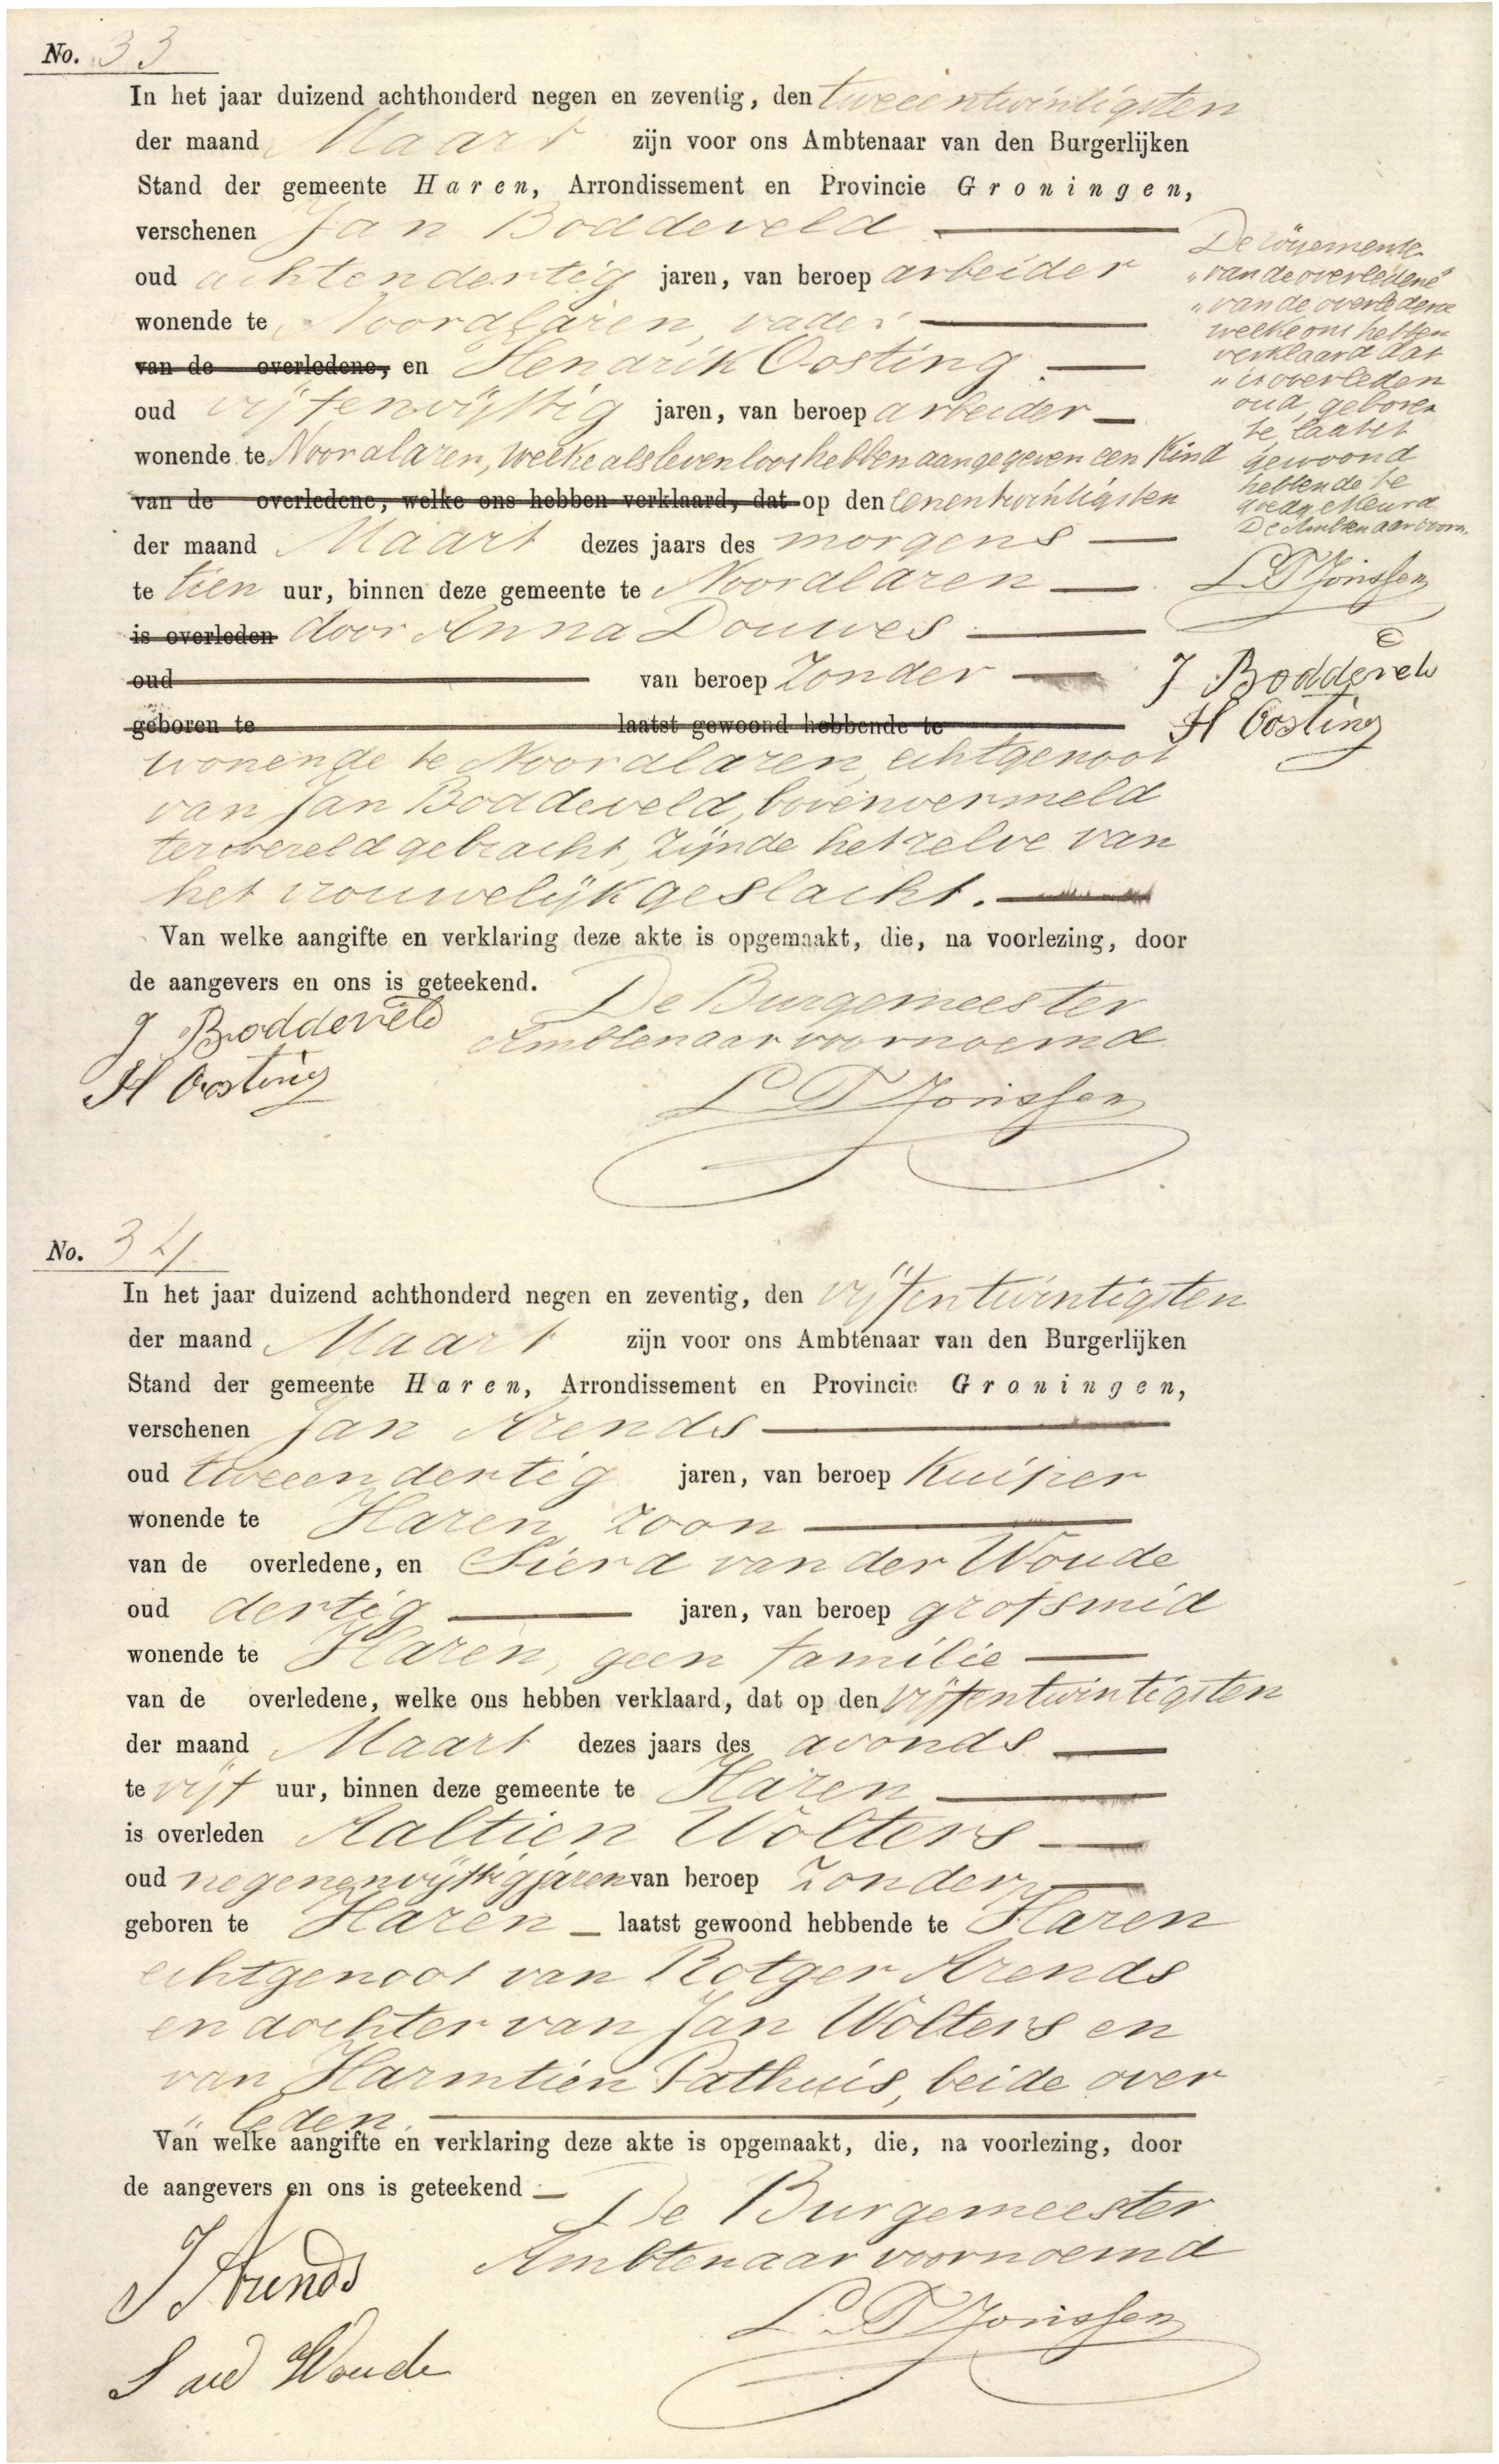 No. 33
In het jaar duizend achthonderd negen en zeventig, den tweeentwintigsten
der maand Maart zijn voor ons Ambtenaar van den Burgerlijken
Stand der gemeente Haren, Arrondissement en Provincie Groningen,
verschenen Jan Boddeveld
oud achtendertig jaren, van beroep arbeider
wonende te Noordlaren, vader
van de overledene, en Hendrik Oosting
oud vijfenvijftig jaren, van beroep arbeider
wonende te Noordlaren, welke als levenloos hebben aangegeven een kind
van de overledene, welke ons hebben verklaard, dat op den eenentwintigsten
der maand Maart dezes jaars des morgens
te tien uur, binnen deze gemeente te Noordlaren
is overleden door Anna Douwes
oud van beroep zonder
geboren te laatst gewoond hebbende te
wonende te Noordlaren, echtgenoot
van Jan Boddeveld, bovenvermeld
ter wereld gebracht, zijnde hetzelve van
het vrouwelijk geslacht.
De royemente
"van de overledene"
"van de overledene
welke ons hebben
verklaard dat
" is overleden
oud, geboren
te, laatst
gewoond
hebbende te
goedgekeurd
De Ambtenaar voorn.
L T Jorissen
J Boddeveld
H Oosting
Van welke aangifte en verklaring deze akte is opgemaakt, die, na voorlezing, door
de aangevers en ons is geteekend.
De Burgemeester
Ambtenaar voornoemd
J Boddeveld
H Oosting
L T Jorissen
No. 34
In het jaar duizend achthonderd negen en zeventig, den vijfentwintigsten
der maand Maart zijn voor ons Ambtenaar van den Burgerlijken
Stand der gemeente Haren, Arrondissement en Provincie Groningen,
verschenen Jan Arends
oud tweeendertig jaren, van beroep Kuiper
wonende te Haren, zoon
van de overledene, en Sierd van der Woude
oud dertig jaren, van beroep grofsmid
wonende te Haren, geen familie
van de overledene, welke ons hebben verklaard, dat op den vijfentwintigsten
der maand Maart dezes jaars des avonds
te vijf uur, binnen deze gemeente te Haren
is overleden Aaltien Wolters
oud negenenvijftig jaren van beroep zonder
geboren te Haren laatst gewoond hebbende te Haren
echtgenoot van Rotger Arends
en dochter van Jan Wolters en
van Harmtien Pathuis, beide over
" leden.
Van welke aangifte en verklaring deze akte is opgemaakt, die, na voorlezing, door
de aangevers en ons is geteekend
De Burgemeester
Ambtenaar voornoemd
J Arends
L T Jorissen
S vd Woude